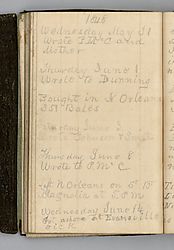 1848
Wednesday May 31
Wrote P. McC and
Mother
Thursday June 1
Wrote to Dunning
Bought in N Orleans
351 Bales
June
Wrote Johnson
Thursday June 8
Wrote to P. McC
Left N Orleans on
Magnolia at 5 P.M
Wednesday June 14
at Evansville
sick